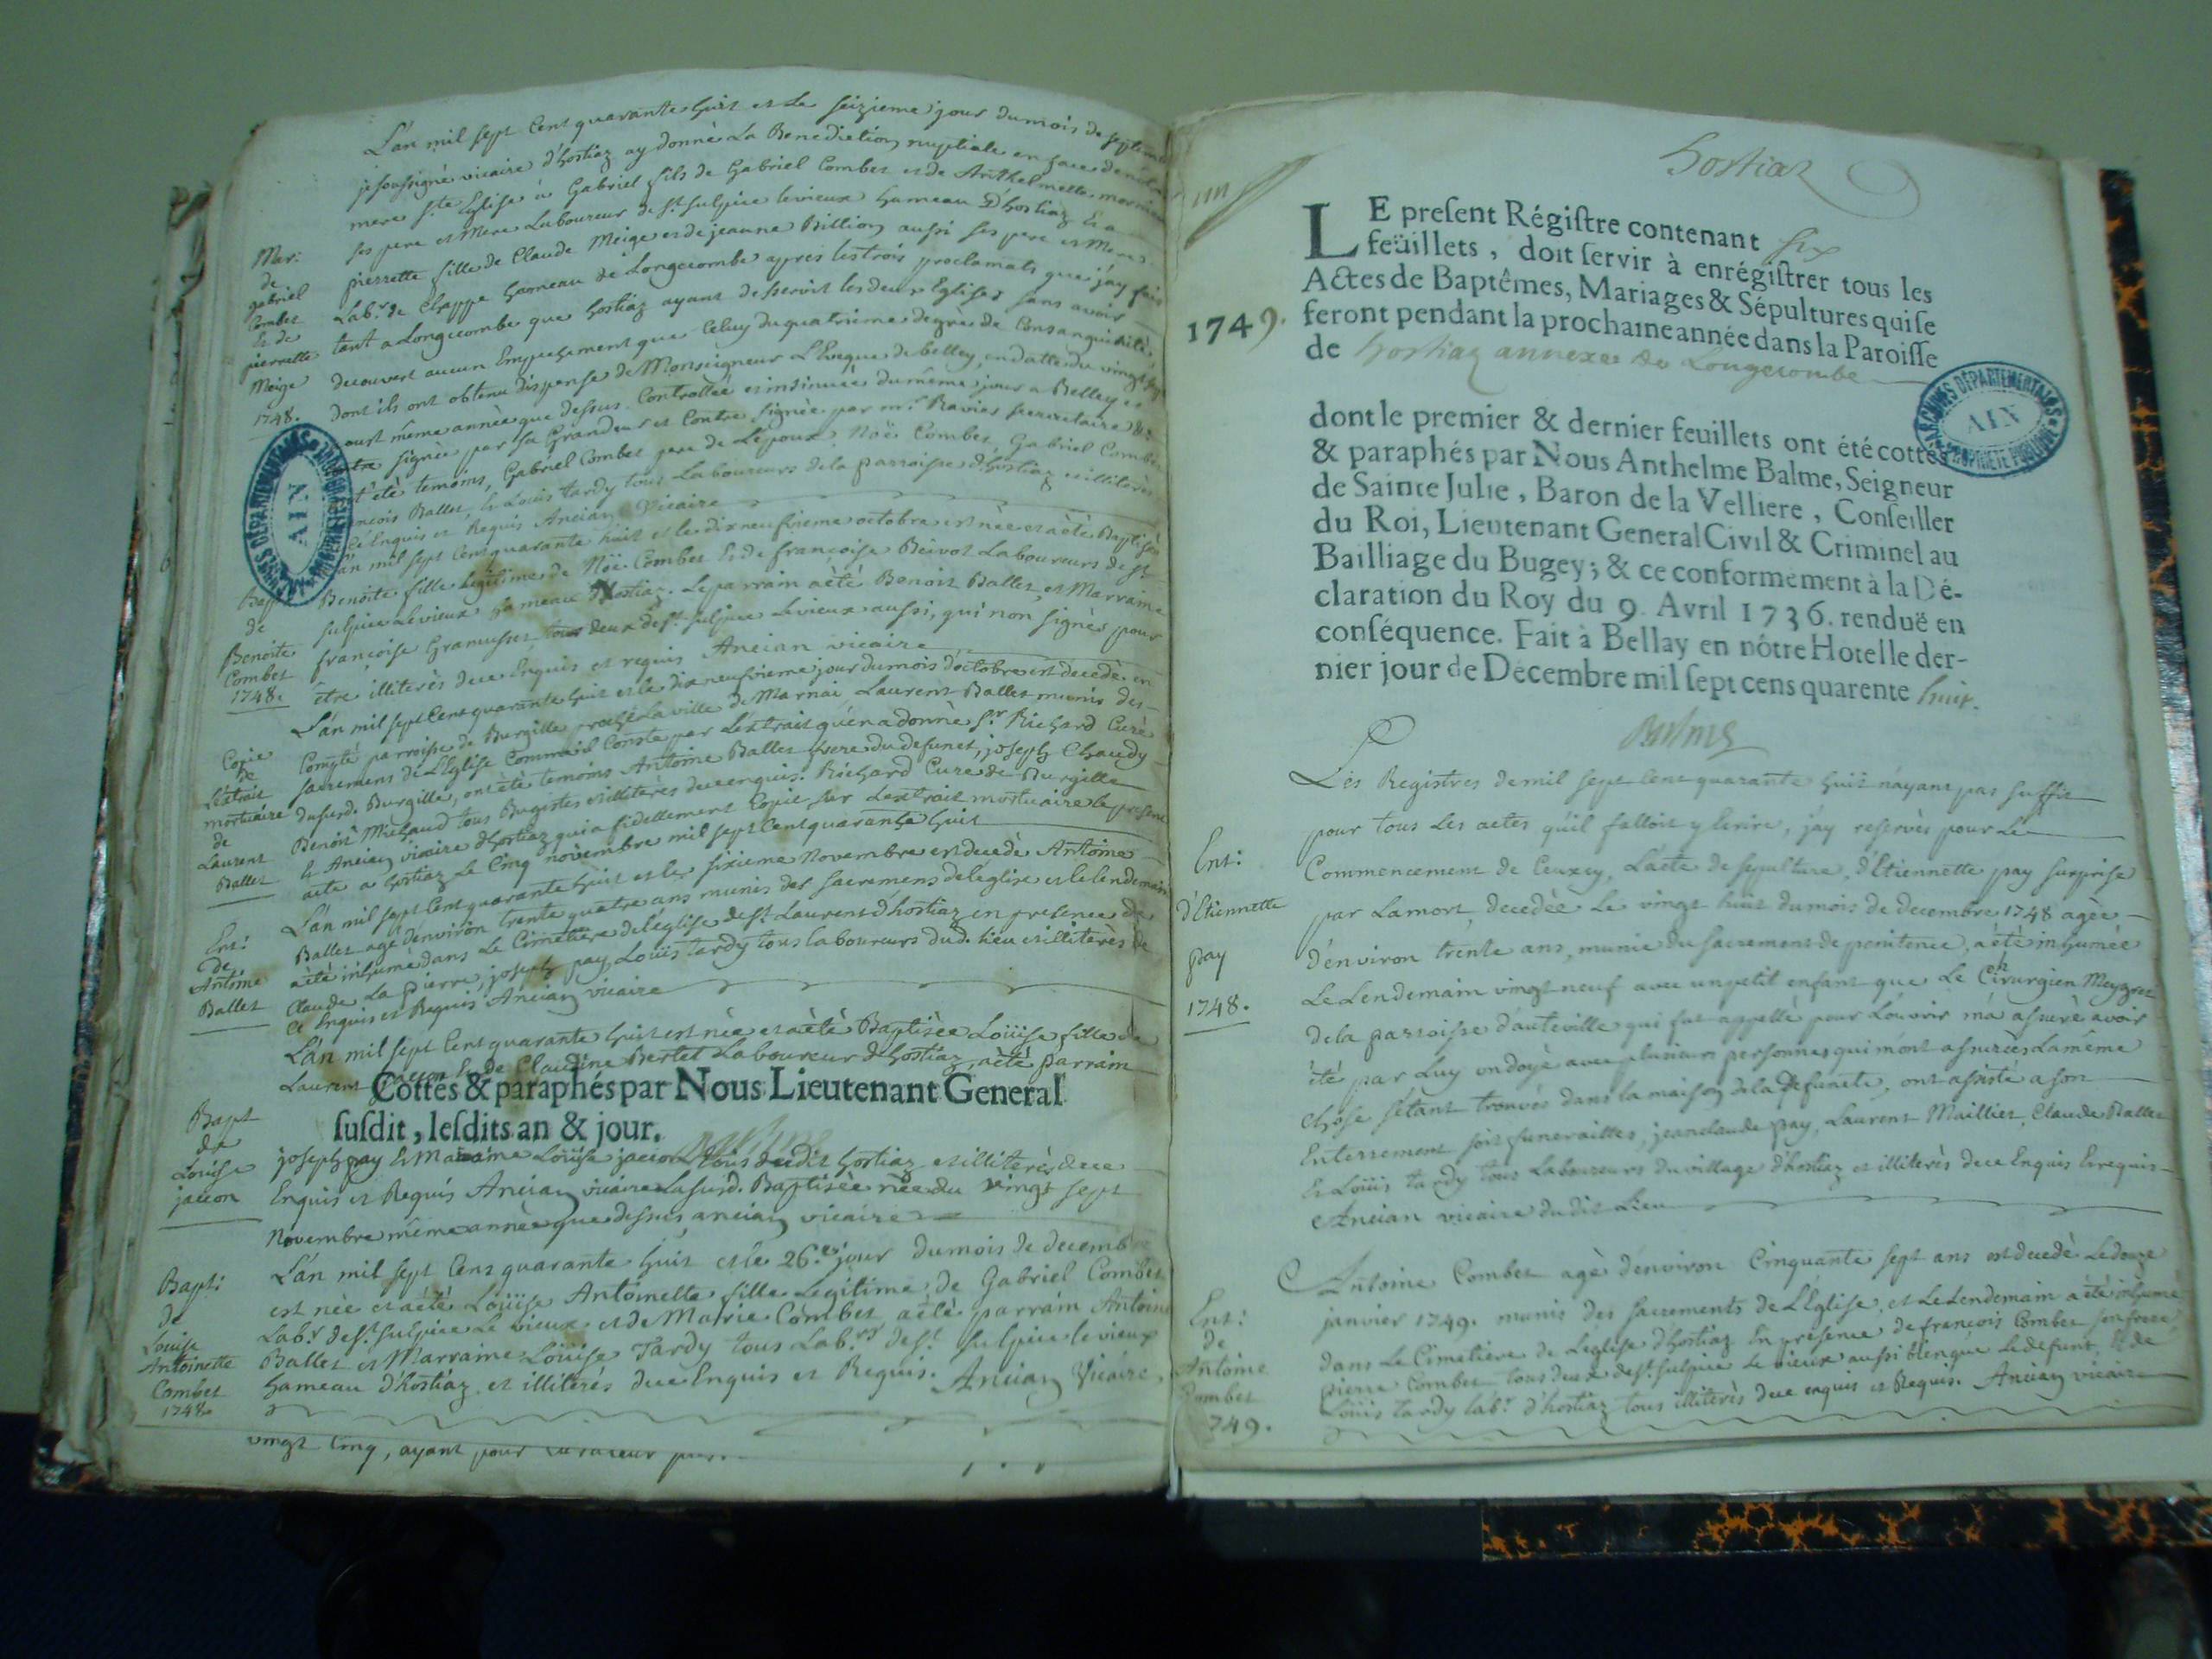 L'an mil sept Cent quarante huit et Le seizieme jour du mois de septemb
je soussigné vicaire d'hostiaz ay donné La Benediction nuptiale en face de nôtre
mere Ste Eglise à Gabriel fils de Gabriel Combet et de Anthelmette
ses pere et Mere Laboureur de St sulpice levieux hameau D'hostiaz Et a
pierrette fille de Claude Meige et de jeanne Billion aussi ses pere et Mere
Labr. de Chappe hameau de Longecombe apres les trois proclamats que j'ay fais
tant a Longecombe que hostiaz ayant desservit les deux Eglises sans avoir
decouvert aucun Empechement que Celuy du quatrieme degrès de Consanguinité,
dont ils ont obtenu dispense de Monseigneur L'Eveque de belley, en datte du vingt
aust même année que dessus Controllée et insinuée du même jour a Belley et
signée par sa Grandeur et Contre signée par mr. Ravier secretaire &:
ont été temoins, Gabriel Combet pere de L'epoux, Noë Combet, Gabriel Combet
François Ballet, Et Louis tardy tous Laboureurs de la parroisse d'hostiaz et illiterès
Enquis et Requis Ancian Vicaire
Mar:
de
gabriel
Combet
Et de
pierrette
Meige
1748.
ARCHIVES DÉPARTEMENTALES
AIN
PROPRIÉTÉ PUBLIQUE
L'an mil sept Cent quarante huit et le dix neufvieme octobre est née et a été Baptisée
Benoite fille legitime de Noë Combet Et de francoise Beivot Laboureurs de St
sulpice Levieux hameau d'hostiaz. Le parrain a été Benoit Ballet, et Marraine
francoise Gramusset, tous deux de St sulpice Levieux aussi, qui non signès pour
être illiterès de ce Enquis et requis Ancian vicaire
Bapt
de
Benoite
Combet
1748.
L'an mil sept Cent quarante huit et le dix neufvieme jour du mois d'octobre est decedé en
Comté parroisse de Burgille proche La ville de Marnai Laurent Ballet munis des
sacremens de L'Eglise Comme il Conste par L'extrait qu'en a donné Sr. Richard Curé
dususd. Burgille, ont été temoins Antoine Ballet frere du defunct, joseph Chaudy
Benoît Michaud tous Bugistes et illiterès de ce enquis. Richard Cure de Burgille
Et Ancian vicaire d'hostiaz qui a fidellement Copié sur L'extrait mortuaire le present
acte a hostiaz Le Cinq novembre mil sept Cent quarante huit
Copie
de
L'extrait
mortuaire
de
Laurent
Ballet
L'an mil sept Cent quarante huit et le sixieme Novembre est decedé Antoine
Ballet agé d'environ trente quatre ans munis des sacremens de L'eglise et le lendemain
a été inhumé dans Le Cimetière de l'église de St Laurent d'hostiaz en presence de
Claude La pierre, joseph pay, Louis tardy tous laboureurs dud. lieu et illiterès de
Ce Enquis et Requis Ancian vicaire
Ent:
de
Antoine
Ballet
L'an mil sept Cent quarante huit est née et a été Baptisée Louise fille de
Laurent jacon Et de Claudine Bertet Laboureur d'hostiaz, a été parrain
Cottés & paraphés par Nous Lieutenant General
susdit, lesdits an & jour.
joseph pay Et Maraine Louise jacon tous dudit hostiaz et illiterès de ce
Enquis et Requis Ancian vicaire Lasusd. Baptisée née du vingt sept
Novembre même année que dessus, ancian vicaire
Bapt
de
Louise
jacon
L'an mil sept Cent quarante huit et le 26e. jour du mois de decembre
est née et a été Louise Antoinette fille Legitime de Gabriel Combet
Labr. de St. sulpice Le vieux et de Marie Combet, a été parrain Antoine
Ballet et Marraine Louise Tardy tous Labrs. de St. sulpice levieux
hameau d'hostiaz et illiterés de ce Enquis et Requis. Ancian Vicaire.
Bapt:
de
Louise
Antoinette
Combet
1748.
vingt Cinq, ayant pour
hostiaz
LE present Régistre contenant six
feüillets, doit servir à enrégistrer tous les
Actes de Baptêmes, Mariages & Sépultures qui se
feront pendant la prochaine année dans la Paroisse
de hostiaz annexe de Longecombe
1749.
ARCHIVES DÉPARTEMENTALES
AIN
PROPRIÉTÉ PUBLIQUE
dont le premier & dernier feuillets ont été cottés
& paraphés par Nous Anthelme Balme, Seigneur
de Sainte Julie, Baron de la Velliere, Conseiller
du Roi, Lieutenant General Civil & Criminel au
Bailliage du Bugey; & ce conformément à la Dé-
claration du Roy du 9. Avril 1736. renduë en
conséquence. Fait à Bellay en nôtre Hotel le der-
nier jour de Décembre mil sept cens quarente huit.
Balme
Les Registres de mil sept Cent quarante huit n'ayant pas suffit
pour tous Les actes qu'il falloit y Ecrire, j'ay reservès pour Le
Commencement de Ceuxcy, L'acte de sepulture, d'Etiennette pay surprise
par La mort, decedée Le vingt huit du mois de decembre 1748 agée
d'environ trente ans, munie du sacrement de penitence, a été inhumée
Le Lendemain vingt neuf avec un petit enfant que Le Chirurgien Meygret
de la parroisse d'auteville qui fut appellé pour L'ouvrir m'a assuré avoir
été par Luy ondoyé avec plusieurs personnes qui m'ont assurées La même
chose s'étant trouvés dans la maison de la defuncte, ont assisté a son
Enterrement soit funerailles, jean claude pay, Laurent Maillier, Claude Ballet
Et Louis tardy tous Laboureurs du village d'hostiaz et illiterès de ce Enquis Et requis
Ancian vicaire dudit Lieu
Ent:
d'Etiennette
pay
1748.
Antoine Combet agé d'environ Cinquante sept ans est decedé Le douze
janvier 1749. munis des sacrements de L'Eglise, et Le Lendemain a été inhumé
dans Le Cimetiere de L'eglise d'hostiaz En présence de françois Combet son frere
pierre Combet tous deux de St. sulpice Le vieux aussi bien que Le defunt, Et de
Louis tardy labr. d'hostiaz tous illiterès de ce enquis et Requis. Ancian vicaire
Ent:
de
Antoine
Combet
1749.